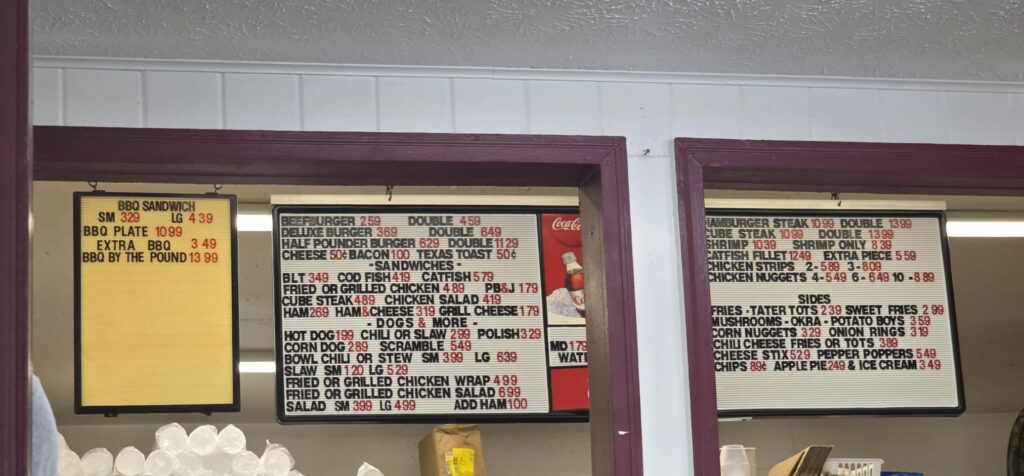 BBQ SANDWICH
SM 329 LG 4 39
BBQ PLATE 10 99
EXTRA BBQ 3 49
BBQ BY THE POUND 13 99
BEEFBURGER 2 59 DOUBLE 4 59
DELUXE BURGER 3 69 DOUBLE 6 49
HALF POUNDER BURGER 6 29 DOUBLE 11 29
CHEESE 50¢ BACON 100 TEXAS TOAST 50¢
- SANDWICHES -
BLT 3 49 COD FISH 4 19 CATFISH 5 79
FRIED OR GRILLED CHICKEN 4 89 PB&J 1 79
CUBE STEAK 4 89 CHICKEN SALAD 4 19
HAM 2 69 HAM & CHEESE 3 19 GRILL CHEESE 1 79
- DOGS & MORE -
HOT DOG 1 99 CHILI OR SLAW 2 99 POLISH 3 29
CORN DOG 2 89 SCRAMBLE 5 49
BOWL CHILI OR STEW SM 3 99 LG 6 39
SLAW SM 1 20 LG 5 29
FRIED OR GRILLED CHICKEN WRAP 4 99
FRIED OR GRILLED CHICKEN SALAD 6 99
SALAD SM 3 99 LG 4 99 ADD HAM 100
Coca-Cola
MD 179
WAT
HAMBURGER STEAK 10 99 DOUBLE 13 99
CUBE STEAK 10 99 DOUBLE 13 99
SHRIMP 10 39 SHRIMP ONLY 8 39
CATFISH FILLET 12 49 EXTRA PIECE 5 59
CHICKEN STRIPS 2 - 5 89 3 - 8 09
CHICKEN NUGGETS 4 - 5 49 6 - 6 49 10 - 8 89
SIDES
FRIES - TATER TOTS 2 39 SWEET FRIES 2 99
MUSHROOMS - OKRA - POTATO BOYS 3 59
CORN NUGGETS 3 29 ONION RINGS 3 19
CHILI CHEESE FRIES OR TOTS 3 89
CHEESE STIX 5 29 PEPPER POPPERS 5 49
CHIPS 89¢ APPLE PIE 2 49 & ICE CREAM 3 49